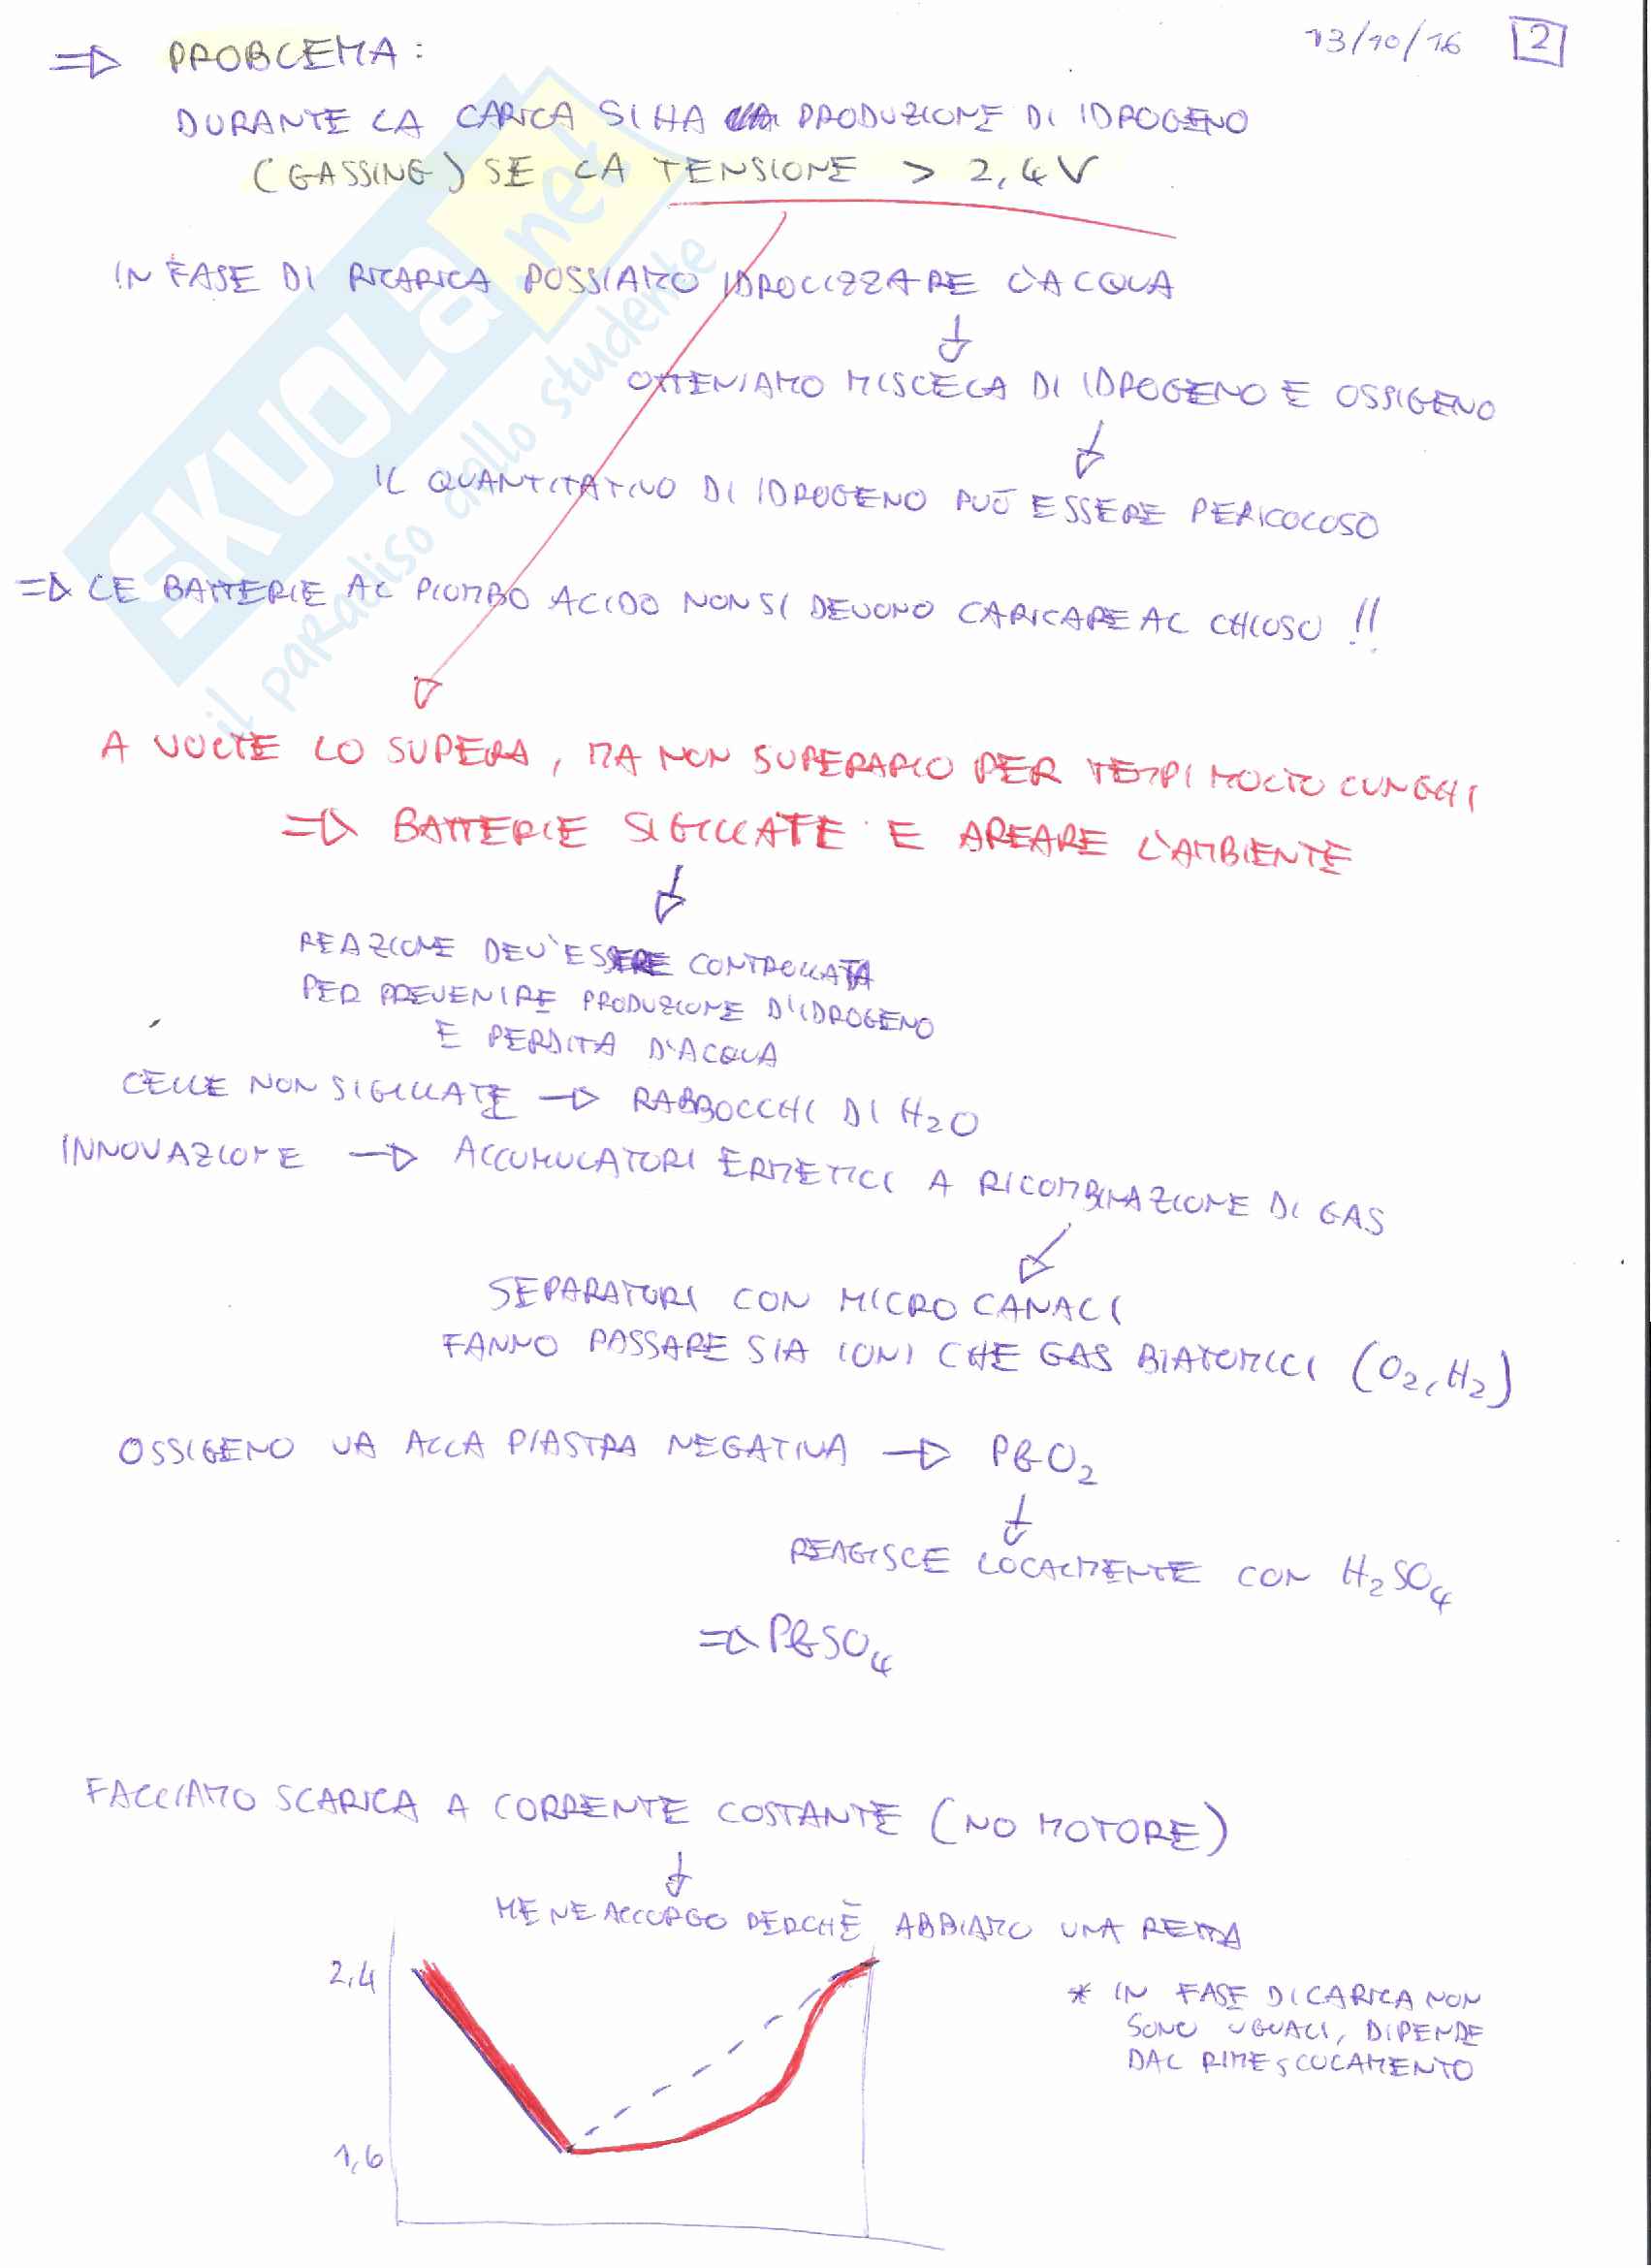 13/10/16 2
⇒ PROBLEMA:
DURANTE LA CARICA SI HA PRODUZIONE DI IDROGENO
(GASSING) SE LA TENSIONE > 2,4 V
IN FASE DI RICARICA POSSIAMO IDROLIZZARE L'ACQUA
↓
OTTENIAMO MISCELA DI IDROGENO E OSSIGENO
↓
IL QUANTITATIVO DI IDROGENO PUÒ ESSERE PERICOLOSO
⇒ LE BATTERIE AL PIOMBO ACIDO NON SI DEVONO CARICARE AL CHIUSO !!
A VOLTE LO SUPERA, MA NON SUPERARLO PER TEMPI MOLTO LUNGHI
⇒ BATTERIE SIGILLATE E AREARE L'AMBIENTE
↓
REAZIONE DEV'ESSERE CONTROLLATA
PER PREVENIRE PRODUZIONE D'IDROGENO
E PERDITA D'ACQUA
CELLE NON SIGILLATE → RABBOCCHI DI H2O
INNOVAZIONE → ACCUMULATORI ERMETICI A RICOMBINAZIONE DI GAS
SEPARATORI CON MICRO CANALI
FANNO PASSARE SIA IONI CHE GAS BIATOMICI (O2, H2)
OSSIGENO VA ALLA PIASTRA NEGATIVA → PbO2
↓
REAGISCE LOCALMENTE CON H2SO4
⇒ PbSO4
FACCIAMO SCARICA A CORRENTE COSTANTE (NO MOTORE)
↓
ME NE ACCORGO PERCHÈ ABBIAMO UNA RETTA
2,4
* IN FASE DI CARICA NON
SONO UGUALI, DIPENDE
DAL RIMESCOLAMENTO
1,6
SKUOLA.net
il paradiso dello studente